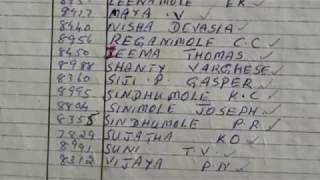 LEENAMOLE E.K.
8917 MAYA . V ✓
8940 NISHA DEVASIA ✓
8956 REGANIMOLE C.C ✓
8450 SEEMA THOMAS ✓
8988 SHANTY VARGHESE ✓
8360 SIJI P. GASPER ✓
8995 SINDHUMOLE K.C ✓
8804 SINIMOLE JOSEPH ✓
8355 SINDHUMOLE P.R ✓
7829 SUJATHA K O ✓
8991 SUNI T.V. ✓
8312 VIJAYA P.N ✓